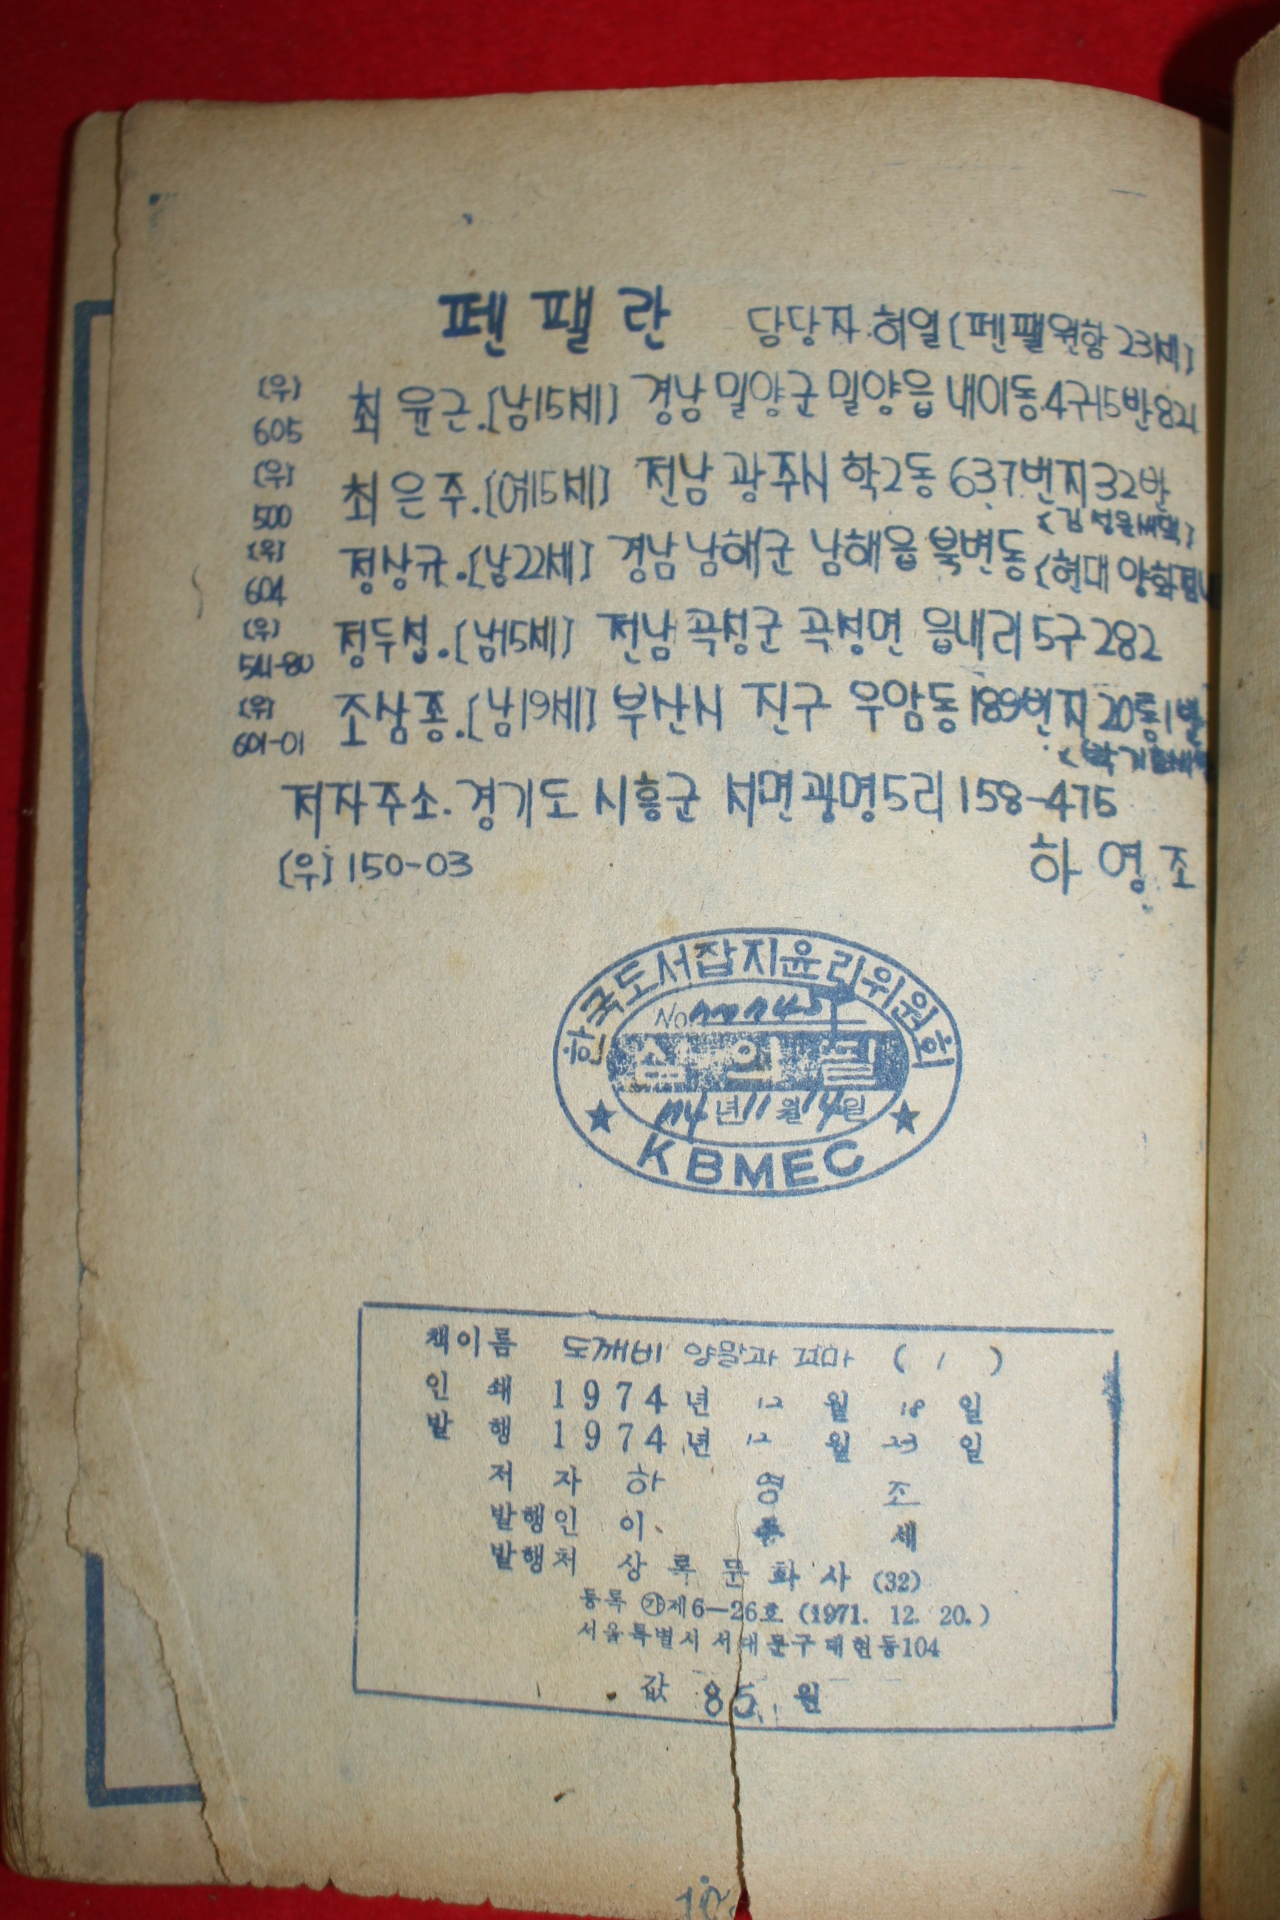 펜팰란 담당자.허열[펜팰원함 23세]
(우) 605 최윤근.[남15세] 경남 밀양군 밀양읍 내이동 4구15반821
(우) 500 최은주.[여15세] 전남 광주시 학2동 637번지32반
<김성문씨댁>
(우) 604 정상규.[남22세] 경남 남해군 남해읍 북변동 <현대 양화점내
(우) 541-80 정두성.[남15세] 전남 곡성군 곡성면 읍내리 5구 282
(우) 601-01 조삼종.[남19세] 부산시 진구 우암동 189번지 20통1반
저자주소.경기도 시흥군 서면광명5리 158-475
[우] 150-03 하영조
한국도서잡지윤리위원회
No
심의필
74년 11월 14일
★ KBMEC ★
책이름 도깨비 양말과 꼬마 ( 1 )
인쇄 1974年 12월 18일
발행 1974年 12월 23일
저자 하영조
발행인 이 세
발행처 상록문화사 (32)
등록 ㉮제6—26호 (1971. 12. 20.)
서울특별시 서대문구 대현동104
값 85 원